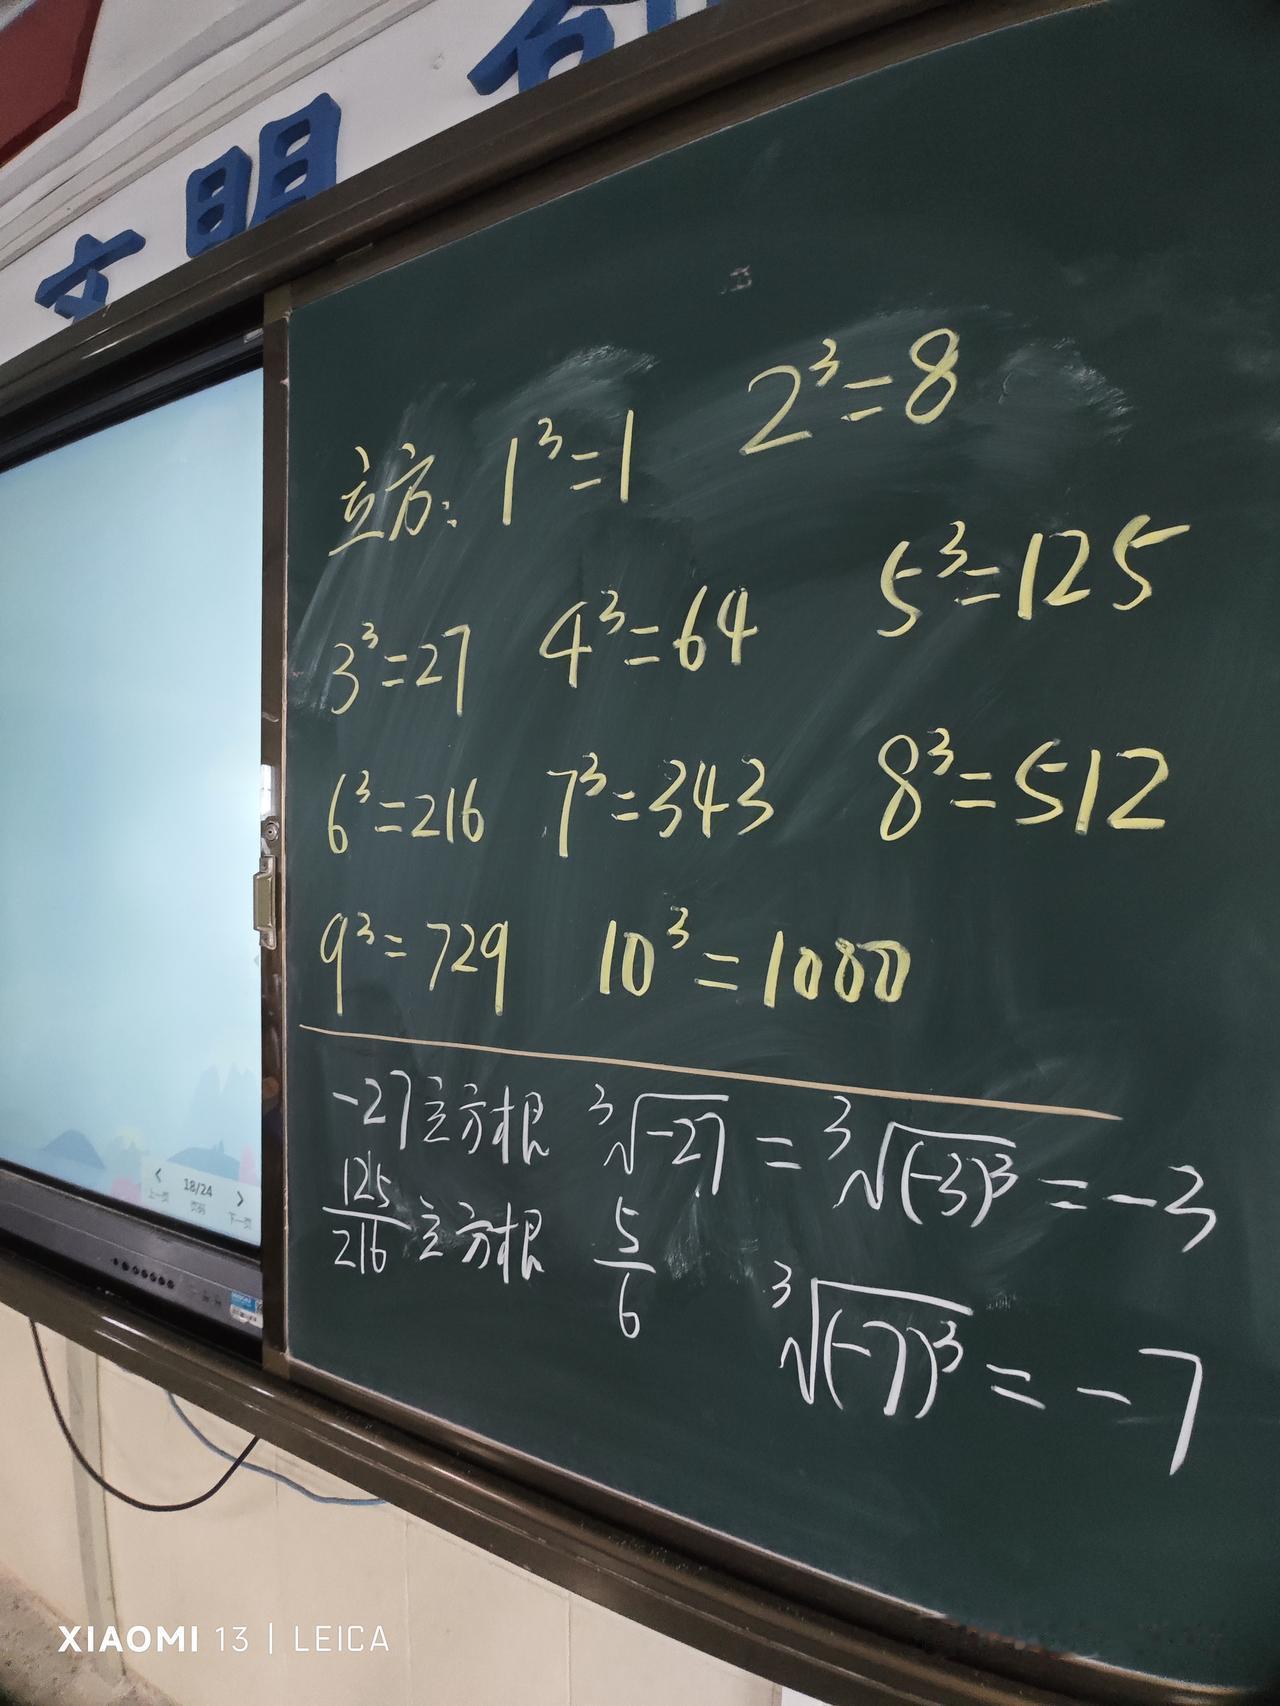 文明
立方: 1³=1 2³=8
3³=27 4³=64 5³=125
6³=216 7³=343 8³=512
9³=729 10³=1000
-27立方根 ∛(-27) = ∛((-3)³) = -3
125/216 立方根 5/6
∛((-7)³) = -7
18/24
上一页 页码 下一页
XIAOMI 13 | LEICA